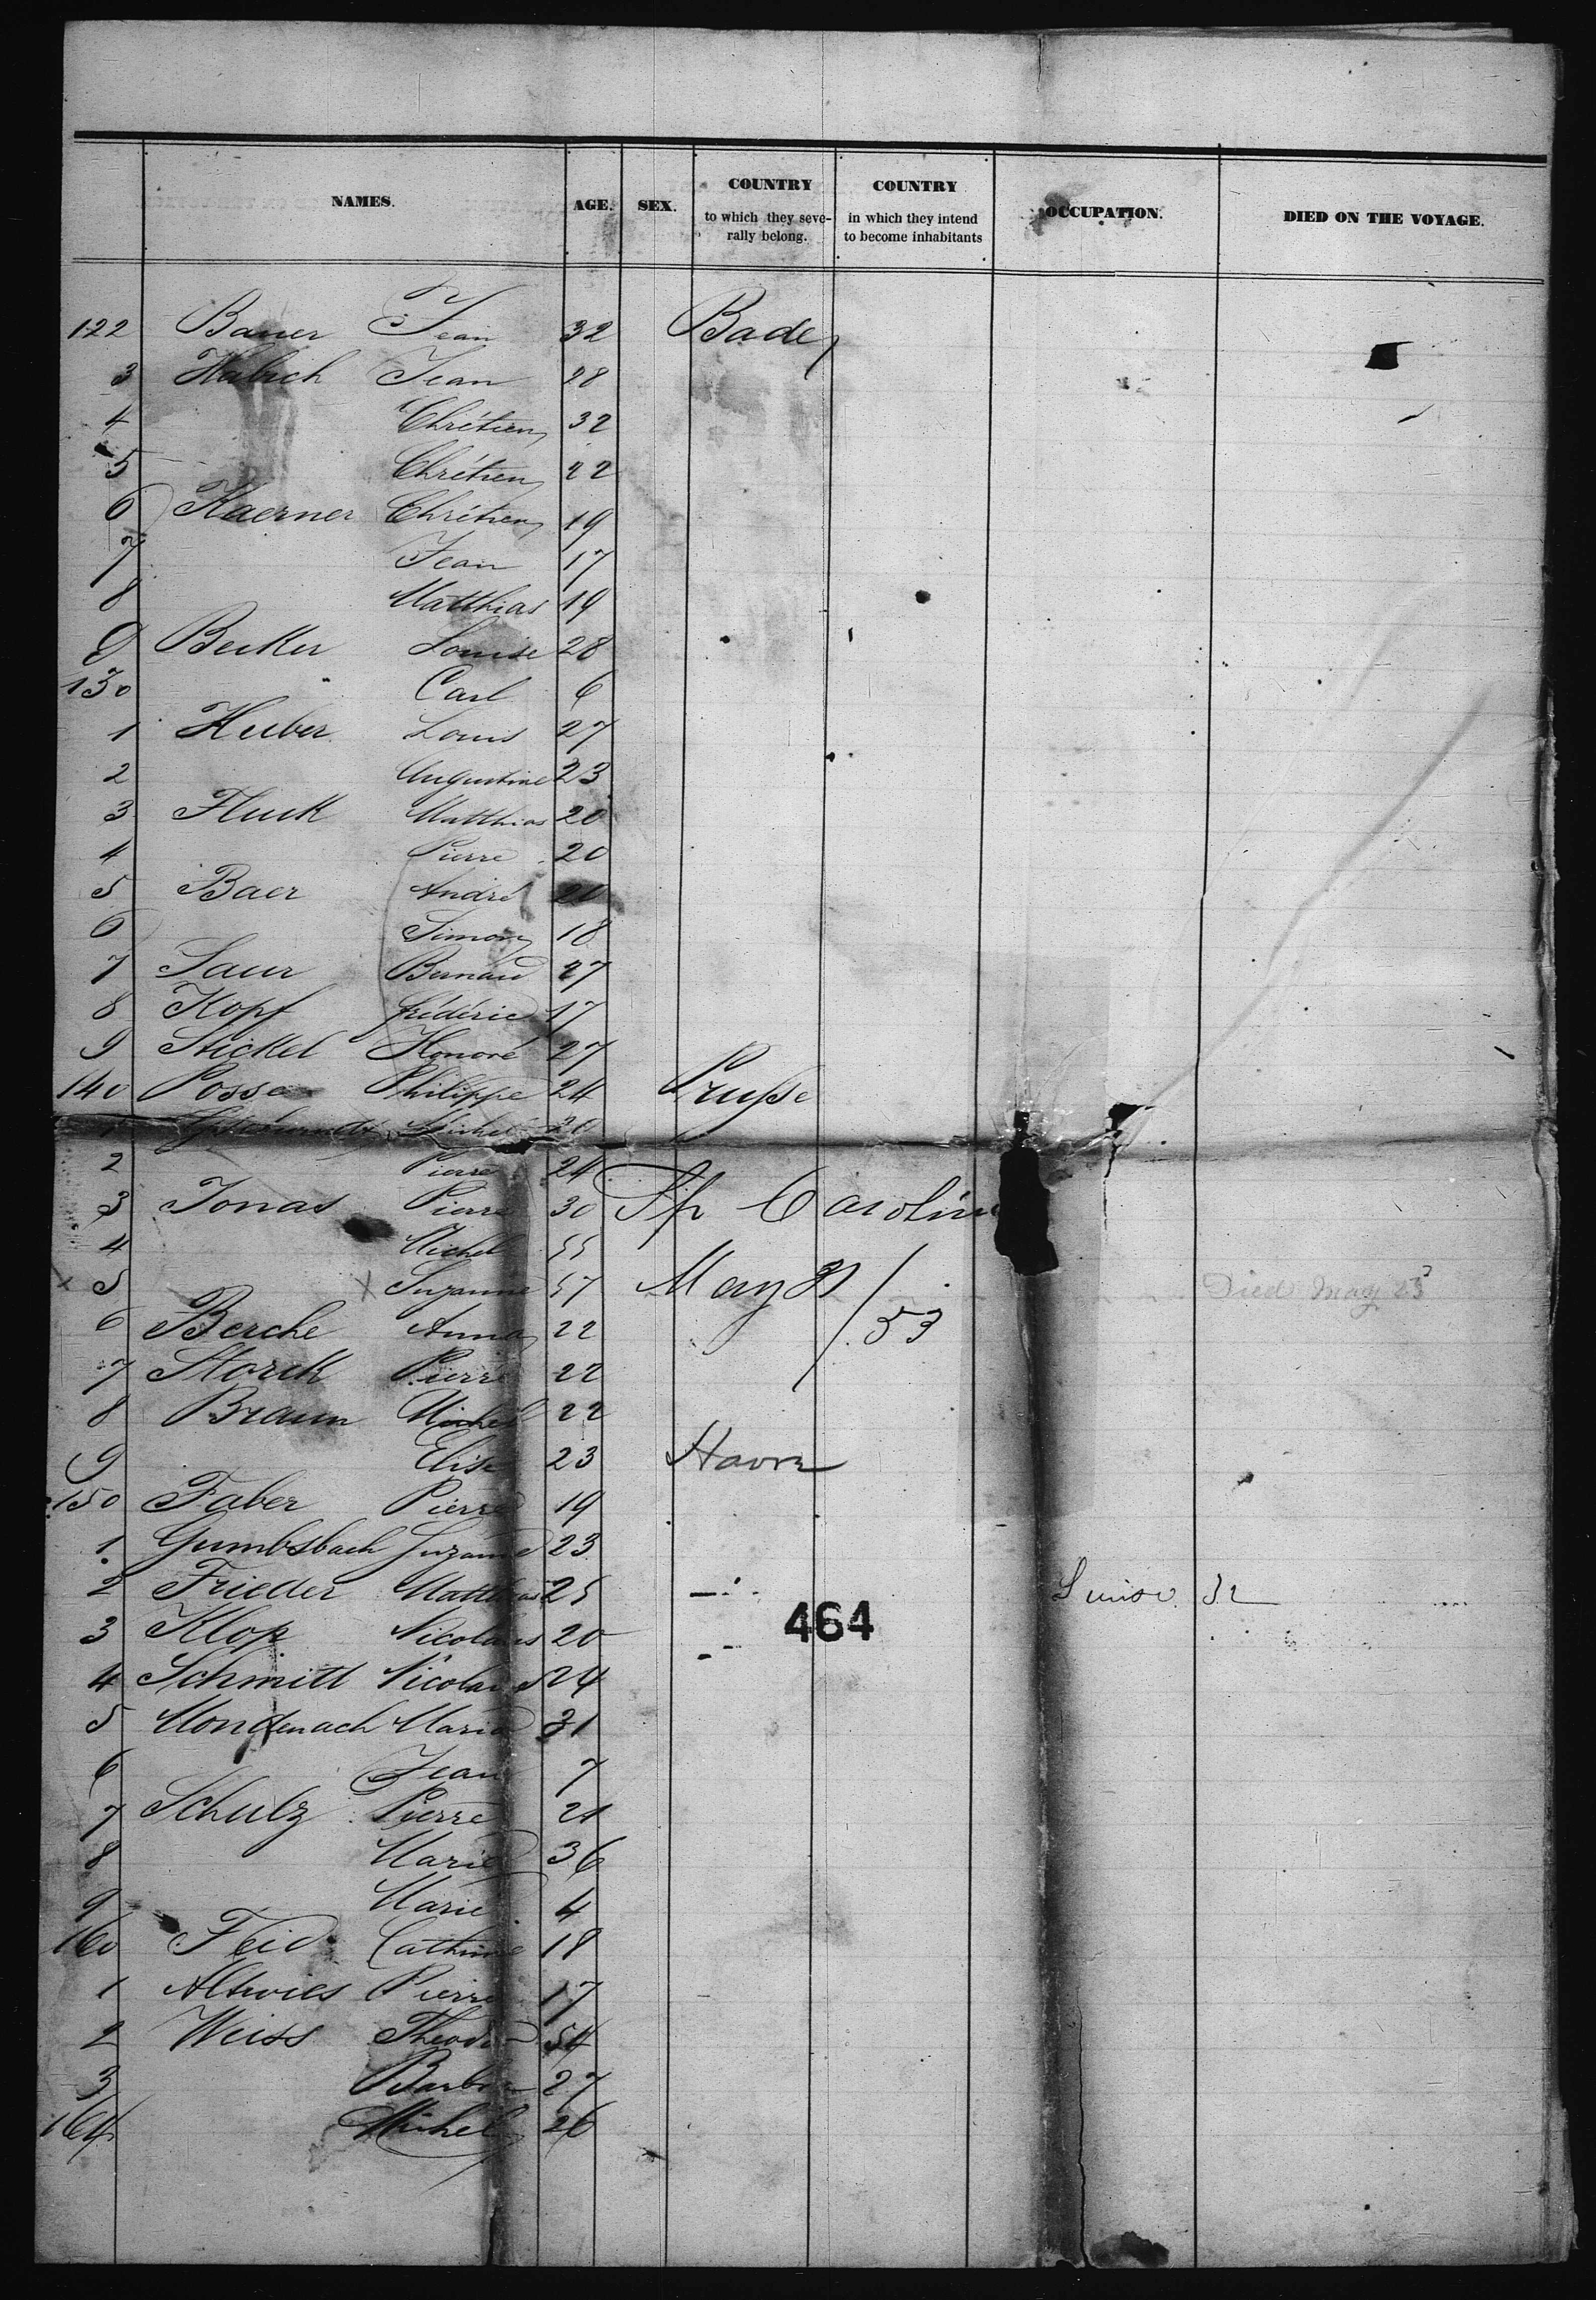 NAMES. AGE. SEX. COUNTRY to which they seve- rally belong. COUNTRY in which they intend to become inhabitants OCCUPATION. DIED ON THE VOYAGE.
122 Bauer Jean 32 Bade
3 Halich Jean 28
4 Chrétien 32
5 Chrétien 22
6 Kaerner Chrétien 19
7 Jean 17
8 Matthias 19
9 Becker Louise 28
130 Carl 6
1 Huber Louis 27
2 Augustine 23
3 Fluck Matthias 20
4 Pierre 20
5 Baer André
6 Simon 18
7 Saur Bernard 27
8 Kopf frédéric 17
9 Stickel Honoré 27
140 Posse Philippe 24 Prusse
1 Michel 20
2 Pierre 24
3 Jonas Pierre 30 Sp Carolin
4 Michel 55
5 x Suzanne 57 May 31 / 53 Died May 23
6 Berche Anna 22
7 Storck Pierre 22
8 Braun Michel 22
9 Elise 23 Havre
150 Faber Pierre 19
1 Gumbsbach Suzanne 23
2 Frieder Matthias 25
3 Klop Nicolaus 20 464
4 Schmitt Nicolaus 24
5 Marie 31
6 Jean 7
7 Schulz Pierre 21
8 Marie 36
9 Marie 4
160 Feid Cathrine 18
1 Altwies Pierre 17
2 Weiss Theodor 54
3 27
164 Michel 26